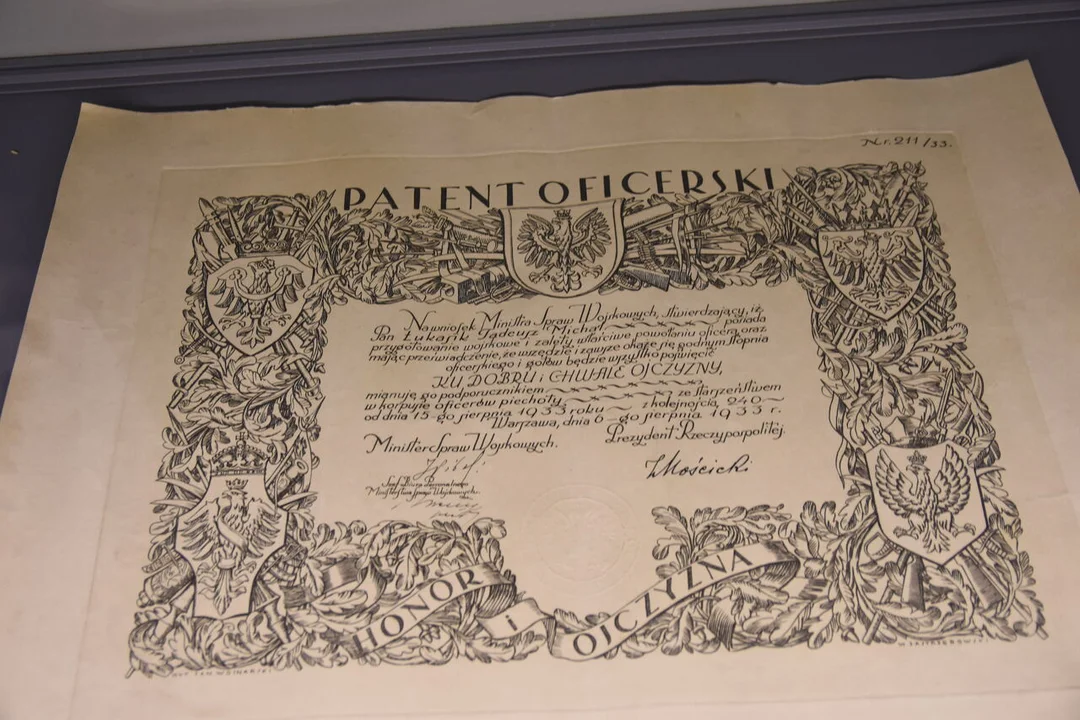 Nr. 211/33.
PATENT OFICERSKI
Na wniosek Ministra Spraw Wojskowych, stwierdzający, iż
Pan Łukasik Tadeusz Michał posiada
przygotowanie wojskowe i zalety właściwe powołaniu oficera, oraz
mając przeświadczenie, że wszędzie i zawsze okaże się godnym stopnia
oficerskiego i gotów będzie wszystko poświęcić
KU DOBRU i CHWALE OJCZYZNY,
mianuję go podporucznikiem ze starszeństwem
w korpusie oficerów piechoty z kolejnością 240
od dnia 15-go sierpnia 1933 roku
Warszawa, dnia 6-go sierpnia 1933 r.
Minister Spraw Wojskowych.
Prezydent Rzeczypospolitej.
IMościcki
Szef Biura Personalnego
Ministerstwa Spraw Wojskowych.
HONOR i OJCZYZNA